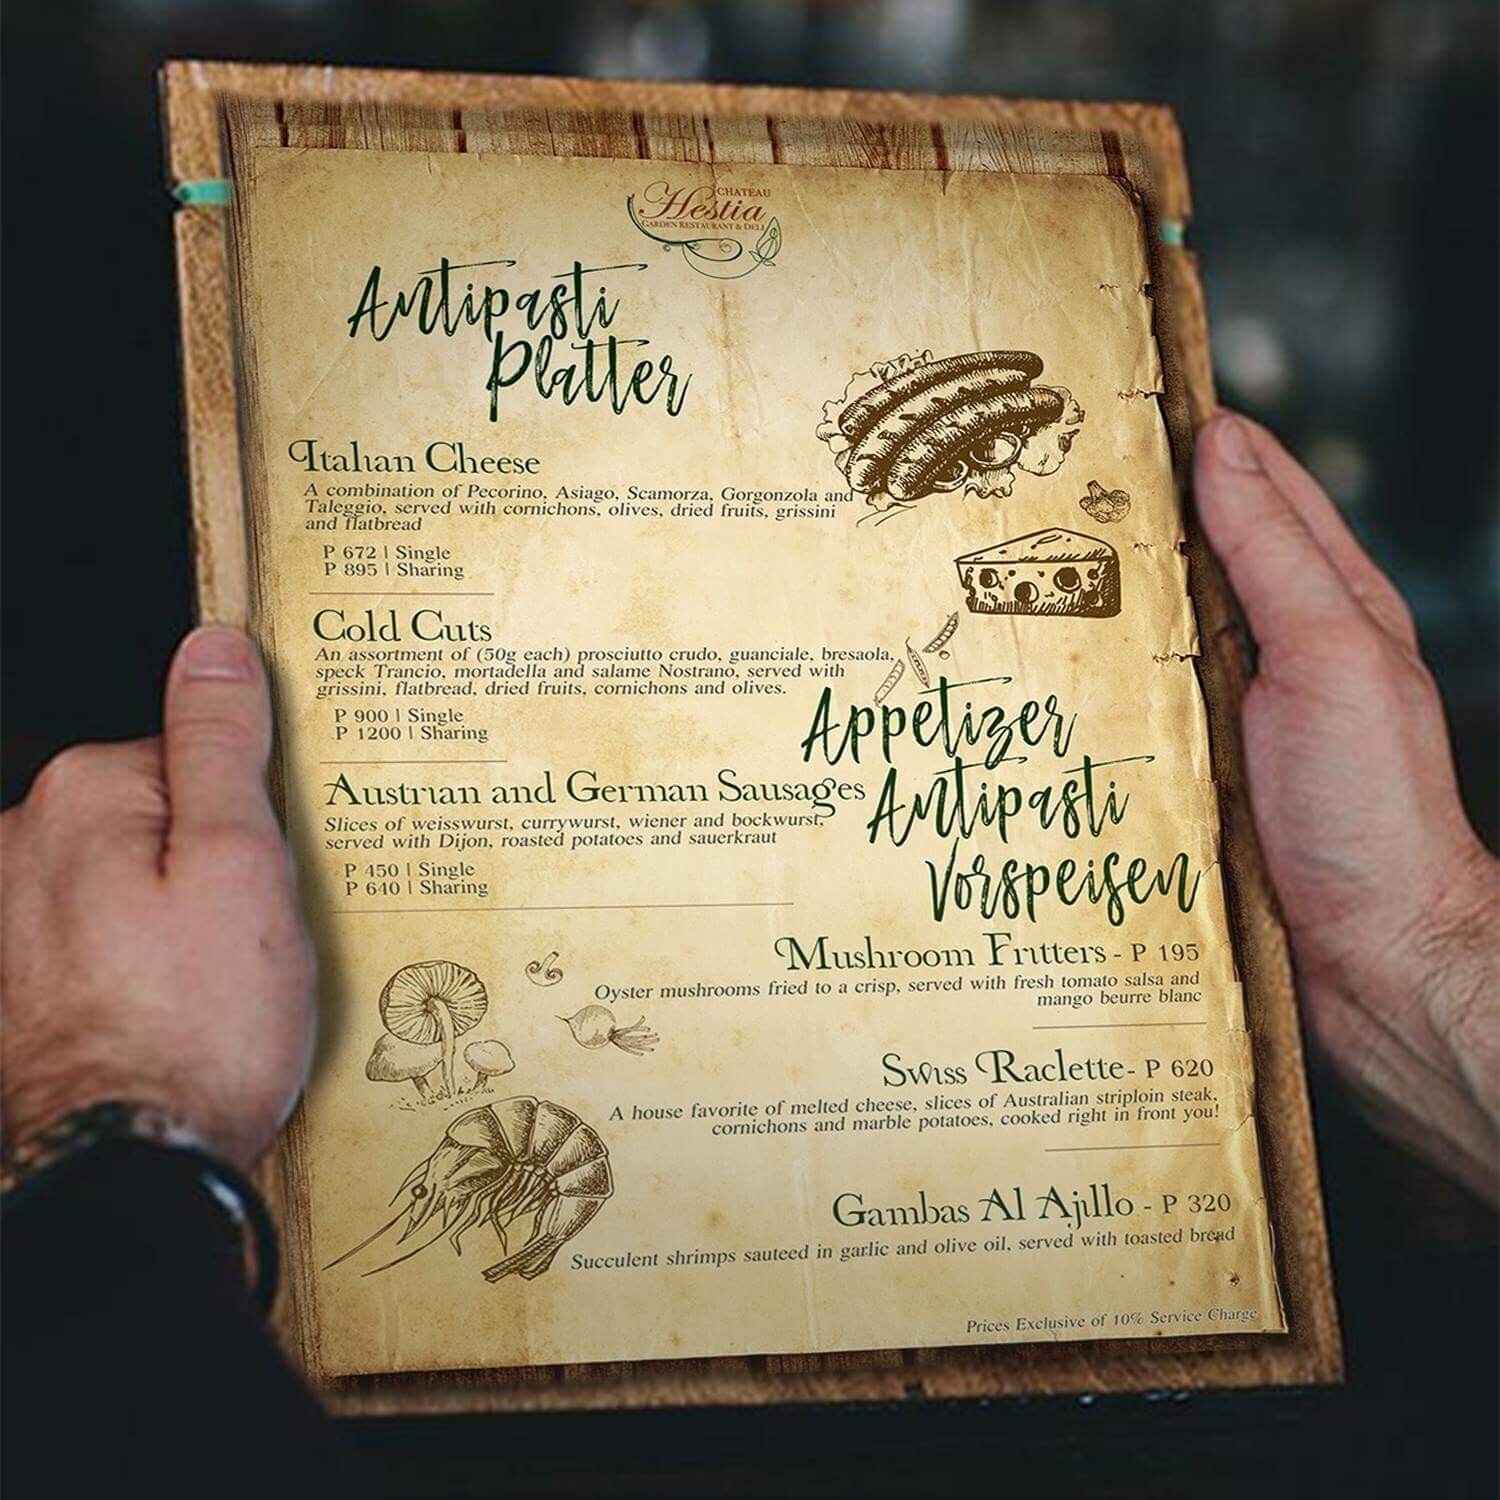 CHATEAU
Hestia
GARDEN RESTAURANT & DELI
Antipasti
Platter
Italian Cheese
A combination of Pecorino, Asiago, Scamorza, Gorgonzola and
Taleggio, served with cornichons, olives, dried fruits, grissini
and flatbread
P 672 | Single
P 895 | Sharing
Cold Cuts
An assortment of (50g each) prosciutto crudo, guanciale, bresaola,
speck Trancio, mortadella and salame Nostrano, served with
grissini, flatbread, dried fruits, cornichons and olives.
P 900 | Single
P 1200 | Sharing
Austrian and German Sausages
Slices of weisswurst, currywurst, wiener and bockwurst,
served with Dijon, roasted potatoes and sauerkraut
P 450 | Single
P 640 | Sharing
Appetizer
Antipasti
Vorspeisen
Mushroom Fritters - P 195
Oyster mushrooms fried to a crisp, served with fresh tomato salsa and
mango beurre blanc
Swiss Raclette- P 620
A house favorite of melted cheese, slices of Australian striploin steak,
cornichons and marble potatoes, cooked right in front you!
Gambas Al Ajillo - P 320
Succulent shrimps sauteed in garlic and olive oil, served with toasted bread
Prices Exclusive of 10% Service Charge